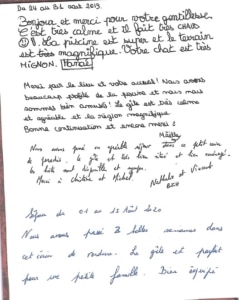 Du 24 au 31 août 2019.
Bonjour et merci pour votre gentillesse.
C'est très calme et il fait très chaud
La piscine est super et le terrain
est très magnifique. Votre chat est très
MIGNON.
Merci par le lieu et votre accueil! Nous avons
beaucoup profité de la piscine et nous nous
sommes bien amusés! Le gîte est très calme
et agréable et la région magnifique
Bonne continuation et encore merci!
Nous avons passé un agréable séjour
le gîte est très bien situé et bien aménagé.
Merci à Christine et Michel.
Nathalie et Vincent
Séjour du 01 au 12 Août 2020
Nous avons passé 2 belles semaines dans
cet écrin de verdure. Le gîte est parfait
pour une petite famille. Bien équipé